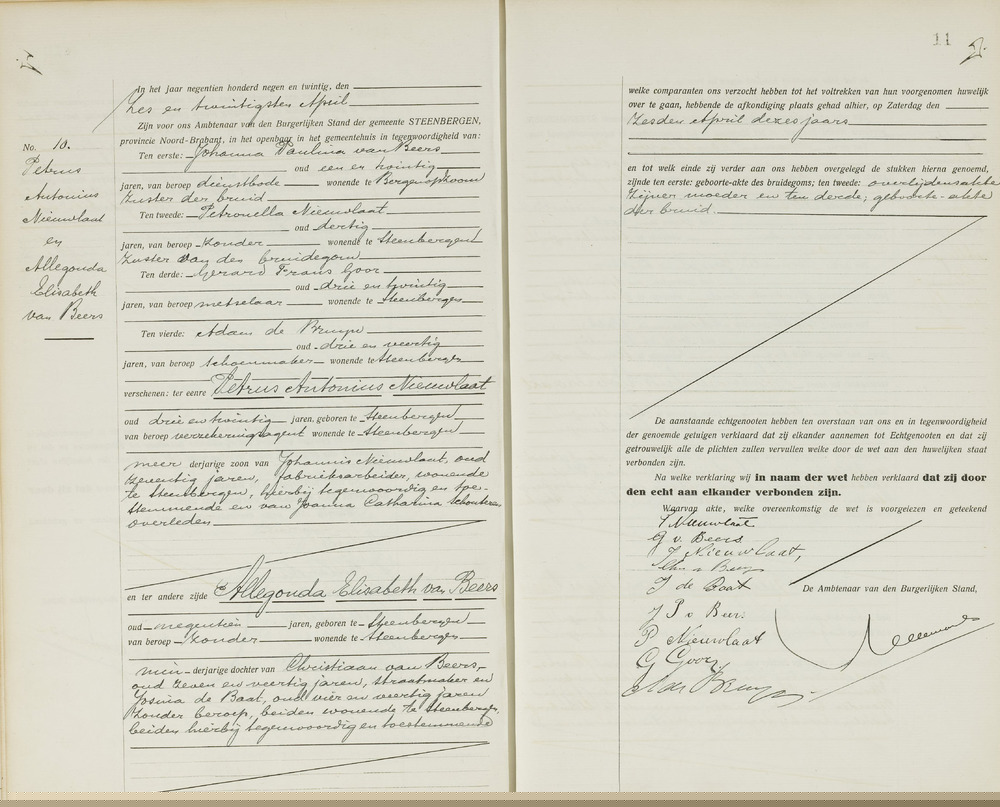 In het jaar negentien honderd negen en twintig, den
Zes en twintigsten April
Zijn voor ons Ambtenaar van den Burgerlijken Stand der gemeente STEENBERGEN,
provincie Noord-Brabant, in het openbaar in het gemeentehuis in tegenwoordigheid van:
Ten eerste: Johanna Paulina van Beers
oud een en twintig
jaren, van beroep dienstbode wonende te Bergen op Zoom
zuster der bruid
Ten tweede: Petronella Nieuwlaat
oud dertig
jaren, van beroep zonder wonende te Steenbergen
zuster van den bruidegom
Ten derde: Gerard Frans Goor
oud drie en twintig
jaren, van beroep metselaar wonende te Steenbergen
Ten vierde: Adam de Bruyn
oud drie en veertig
jaren, van beroep schoenmaker wonende te Steenbergen
verschenen: ter eenre Petrus Antonius Nieuwlaat
oud drie en twintig jaren, geboren te Steenbergen
van beroep verzekeringsagent wonende te Steenbergen
meer derjarige zoon van Johannis Nieuwlaat, oud
zeventig jaren, fabrieksarbeider, wonende
te Steenbergen, hierbij tegenwoordig en toe-
stemmende en van Joanna Catharina Schouteren
overleden
en ter andere zijde Allegonda Elisabeth van Beers
oud negentien jaren, geboren te Steenbergen
van beroep zonder wonende te Steenbergen
min-derjarige dochter van Christiaan van Beers,
oud zeven en veertig jaren, straatmaker en
Josina de Baat, oud vier en veertig jaren
zonder beroep, beiden wonende te Steenbergen,
beiden hierbij tegenwoordig en toestemmende
No. 10.
Petrus
Antonius
Nieuwlaat
en
Allegonda
Elisabeth
van Beers
11
welke comparanten ons verzocht hebben tot het voltrekken van hun voorgenomen huwelijk
over te gaan, hebbende de afkondiging plaats gehad alhier, op Zaterdag den
zesden April dezes jaars
en tot welk einde zij verder aan ons hebben overgelegd de stukken hierna genoemd,
zijnde ten eerste: geboorte-akte des bruidegoms; ten tweede: overlijdensakte
zijner moeder en ten derde; geboorte-akte
der bruid.
De aanstaande echtgenooten hebben ten overstaan van ons en in tegenwoordigheid
der genoemde getuigen verklaard dat zij elkander aannemen tot Echtgenooten en dat zij
getrouwelijk alle de plichten zullen vervullen welke door de wet aan den huwelijken staat
verbonden zijn.
Na welke verklaring wij in naam der wet hebben verklaard dat zij door
den echt aan elkander verbonden zijn.
Waarvan akte, welke overeenkomstig de wet is voorgelezen en geteekend
Nieuwlaat
v. Beers
J Nieuwlaat,
J de Baat
De Ambtenaar van den Burgerlijken Stand,
J P v Beers
P Nieuwlaat
G Goor
A de Bruyn